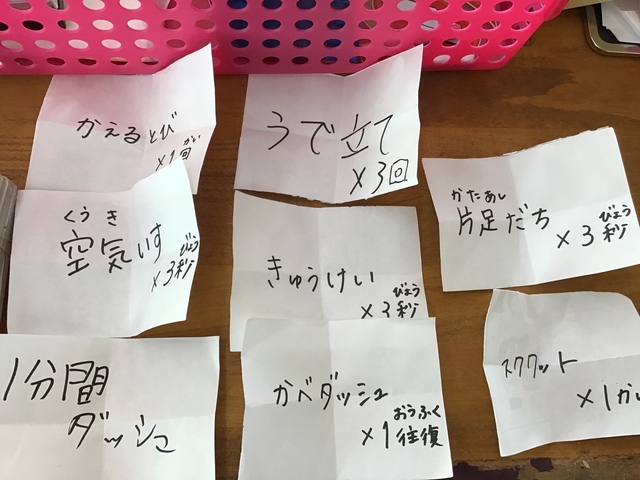 かえるとび
×1回
かい
うで立て
×3回
かたあし
片足だち
×3秒
びょう
くうき
空気いす
×3秒
びょう
きゅうけい
×3秒
びょう
1分間
ダッシュ
かべダッシュ
×1往復
おうふく
スクワット
×1かい